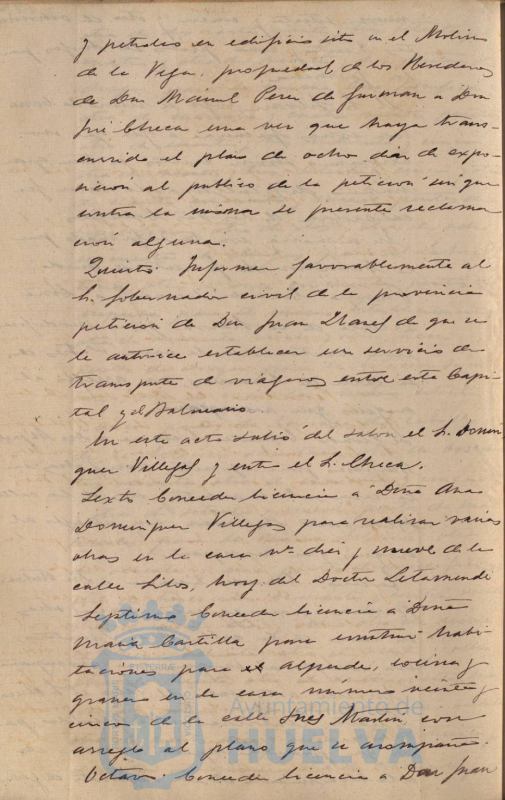 y petroleo en edificio sito en el Molino
de la Vega, propiedad de los Herederos
de Don Manuel Perez de Guzman a Don
José Checa una vez que haya trans-
currido el plazo de ocho dias de expo-
sición al publico de la petición sin que
contra la misma se presente reclama
ción alguna.
Quinto. Informar favorablemente al
Sr. Gobernador civil de la provincia
petición de Don Juan de que se
le autorice establecer un servicio de
transporte de viajeros entre esta Capi-
tal y el Balneario
En este acto salió del salon el Sr. Domin
guez Villegas y entra el Sr. Checa.
Sexto Conceder licencia á Doña Ana
Dominguez Villegas para realizar varias
obras en la casa nº diez y nueve de la
calle Silos, hoy del Doctor Letamendi
Septimo Conceder licencia a Doña
Maria Castilla para construir habi-
taciones para alpende, cocina y
granero en la casa número veinte y
cinco de la calle Ines Martin con
arreglo al plano que se acompaña.
Octavo. Conceder licencia a Don Juan
Ayuntamiento de
HUELVA